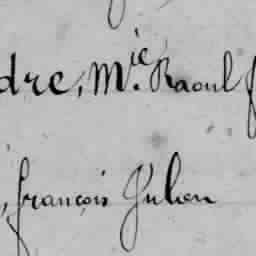 dre, Mie. Raoul f
, françois Julien